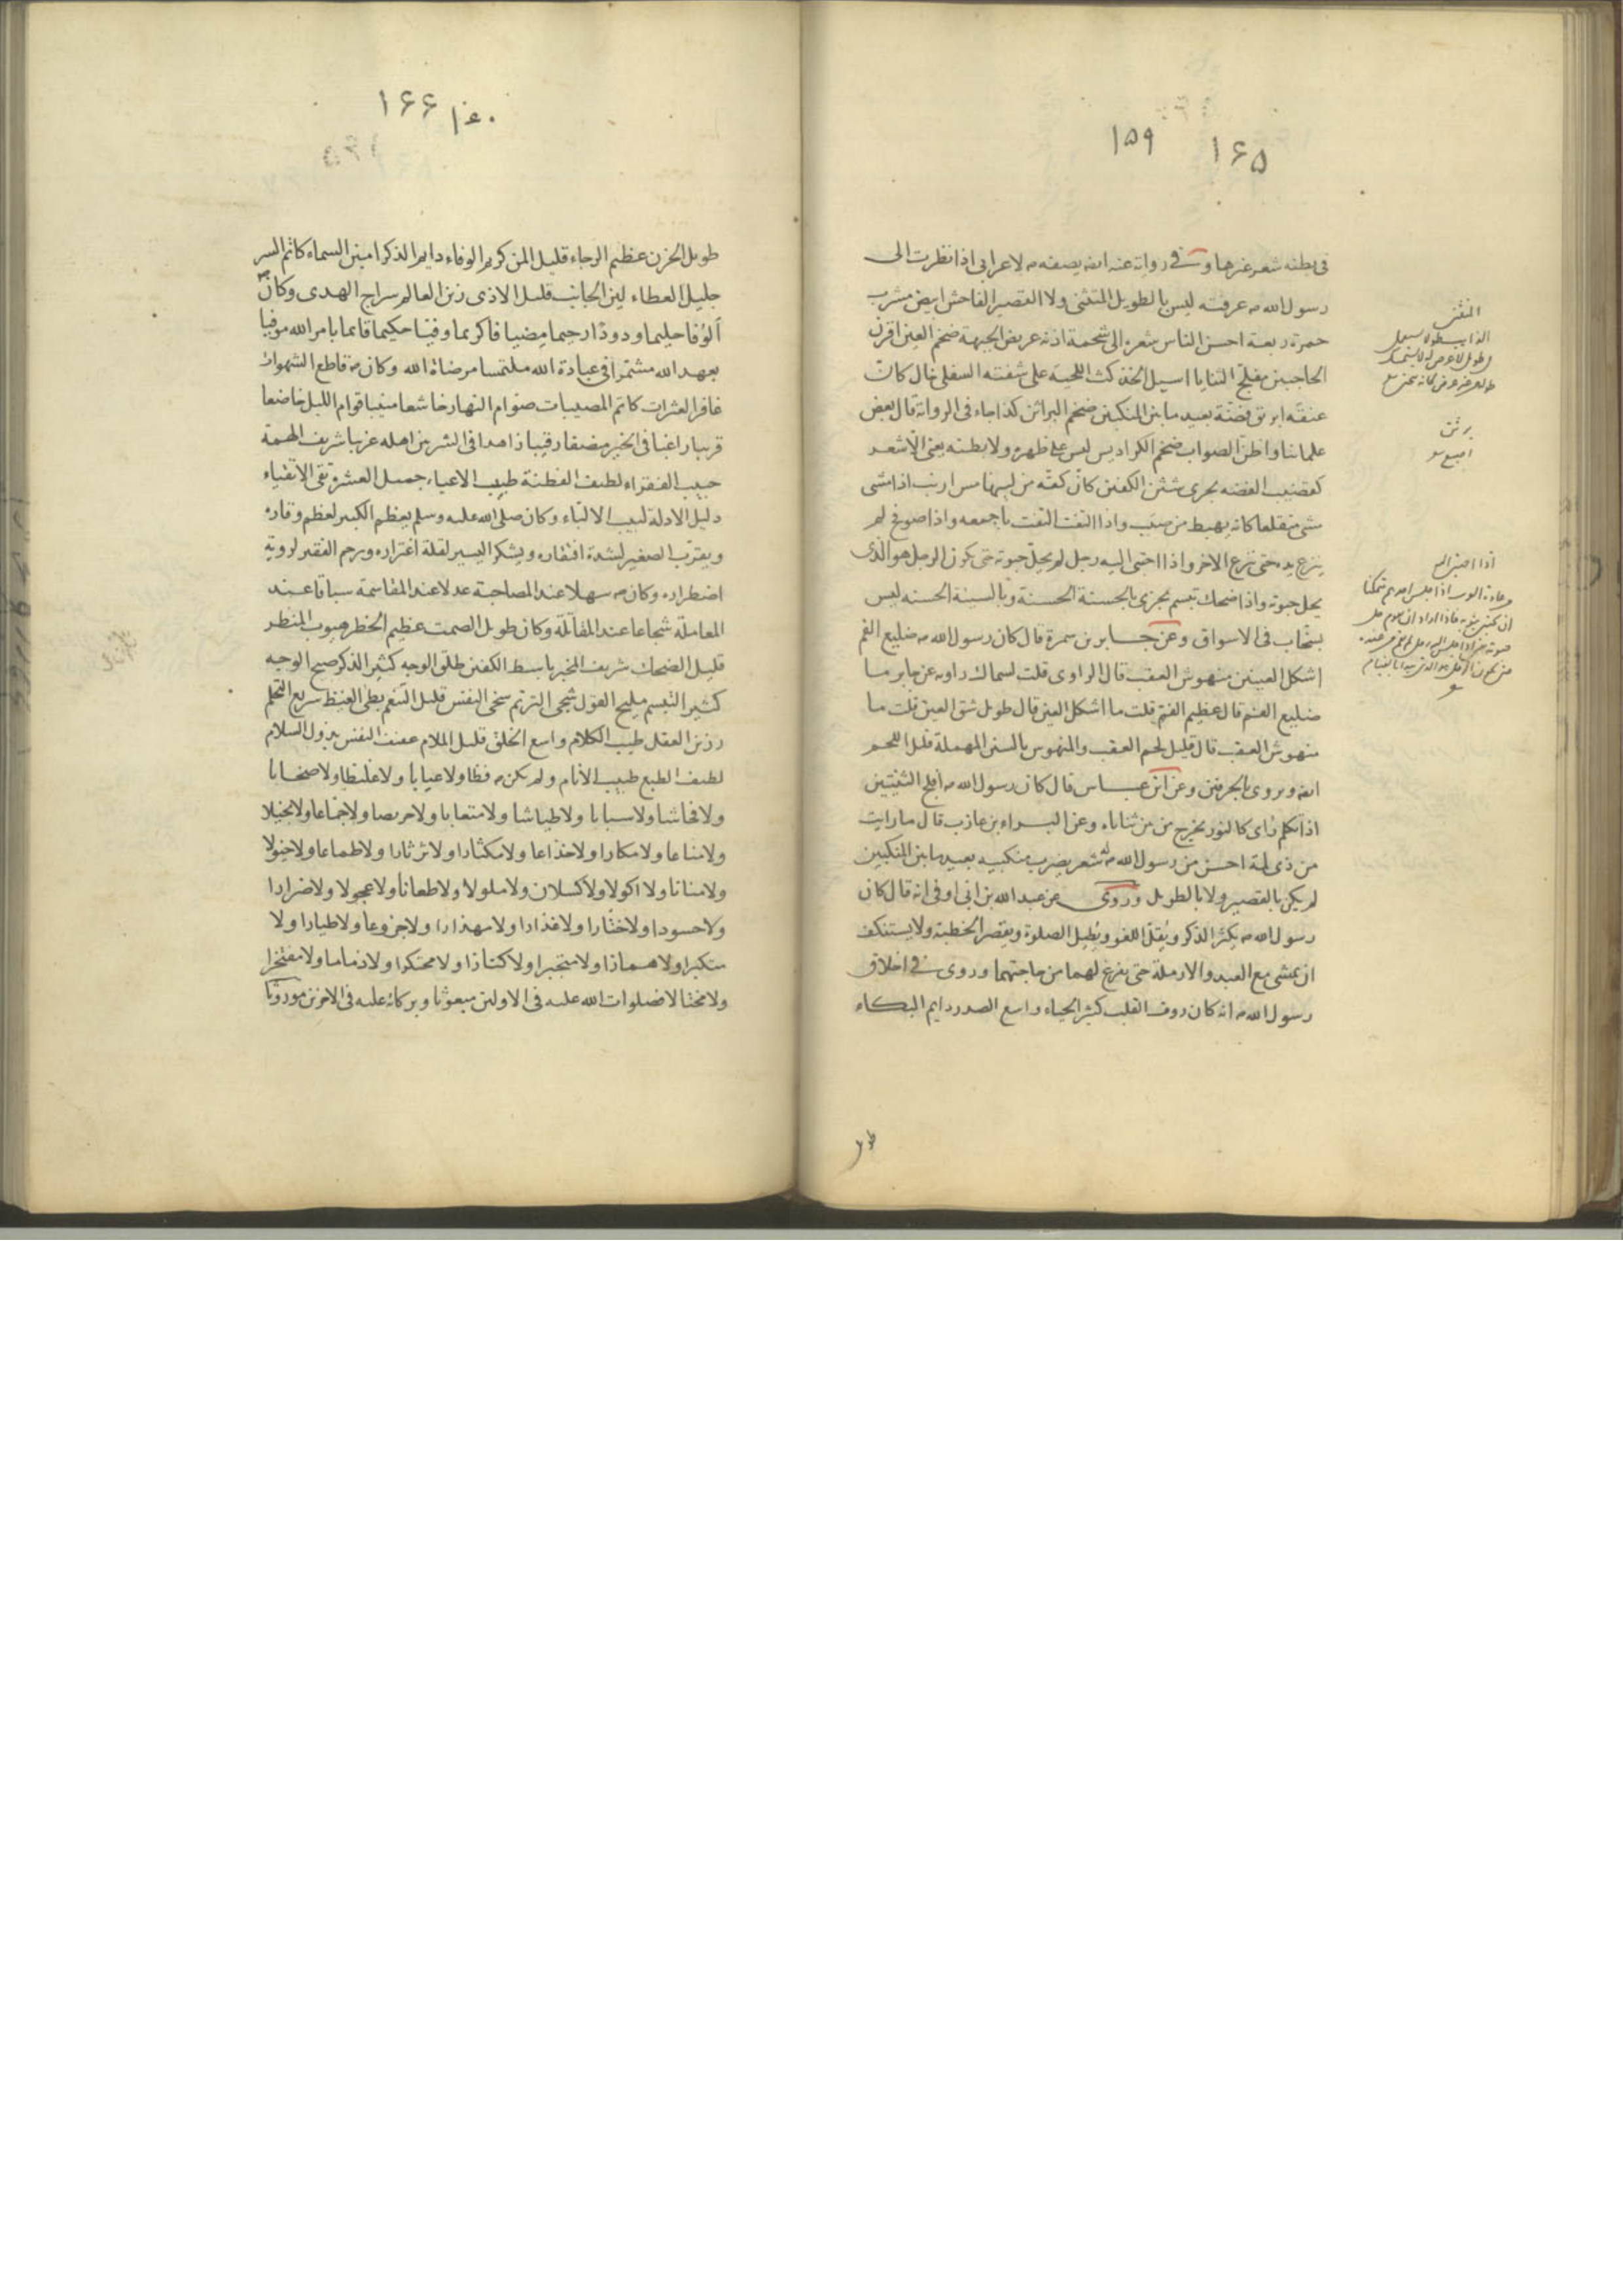 ۱۵۹ ۱۶۵
فى بطنه شعر غيرها وفى رواية عنه انه يصفه ص لاعرابى اذا نظرت الى
رسول الله ص عرفته ليس بالطويل المتثنى ولا القصير الفاحش ابيض مشرب
حمرة ربعة احسن الناس شعره الى شحمة اذنه عريض الجبهة ضخم العين اقرن
الحاجبين مفلج الثنايا اسيل الخد كث اللحية على شفته السفلى خال كان
عنقه ابريق فضة بعيد ما بين المنكبين ضخم البراثن كذا جاء فى الرواية قال بعض
علمائنا واظن الصواب ضخم الكراديس ليس على ظهره ولا بطنه يعنى الا شعر
كقضيب الفضه يجرى شثن الكفين كان كفه من لينها مس ارنب اذا مشى
مشى متقلعا كانه يهبط من صبب واذا التفت التفت باجمعه واذا صوفح لم
ينزع يده حتى ينزع الاخر واذا احتبى اليه رجل لم يحل حبوته حتى يكون الرجل هو الذى
يحل حبوته واذا ضحك تبسم يجزى بالحسنة الحسنة وبالسيئة الحسنة ليس
بسخاب فى الاسواق وعن جابر بن سمرة قال كان رسول الله ص ضليع الفم
اشكل العينين منهوش العقب قال الراوى قلت لسماك راويه عن جابر ما
ضليع الفم قال عظيم الفم قلت ما اشكل العين قال طويل شق العين قلت ما
منهوش العقب قال قليل لحم العقب والمنهوس بالسين المهملة قليل اللحم
ايضا ويروى بالحرفين وعن ابن عباس قال كان رسول الله ص افلج الثنيتين
اذا تكلم رأى كالنور يخرج من بين ثناياه وعن البراء بن عازب قال ما رايت
من ذى لمة احسن من رسول الله ص له شعر يضرب منكبيه بعيد ما بين المنكبين
لم يكن بالقصير ولا بالطويل وروى عن عبد الله بن ابى اوفى انه قال كان
رسول الله ص يكثر الذكر ويقل اللغو ويطيل الصلوة ويقصر الخطبة ولا يستنكف
ان يمشى مع العبد والارملة حتى يفرغ لهما من حاجتهما وروى فى اخلاق
رسول الله ص انه كان رؤف القلب كثير الحياء واسع الصدر دايم البكاء
برثن
اصبع
اذا احتبى اليه
۱۶۶ ۱۶۰
طويل الحزن عظيم الرجاء قليل المن كريم الوفاء دايم الذكر امين السماء كاتم السر
جليل العطاء لين الجانب قليل الاذى زين العالم سراج الهدى وكان ص
الوفا حليما ودودا رحيما مضيافا كريما وفيا حكيما قائما بامر الله موفيا
بعهد الله مشتمرا فى عبادة الله ملتمسا مرضاة الله وكان ص قاطع الشهوات
غافر العثرات كاتم المصيبات صوام النهار خاشعا منيبا قوام الليل خاضعا
قريبا راغبا فى الخير مضيفا رقيبا زاهدا فى الشر بين اهله غريبا شريف الهمة
حبيب الفقراء لطيف الفطنة طبيب الاعياء جميل العشرة تقى الاتقياء
دليل الادلة لبيب الالباء وكان صلى الله عليه وسلم يعظم الكبير لعظم وقاره
ويقرب الصغير لشدة افتقاره ويشكر اليسير لقلة اغتراره ويرحم الفقير لروية
اضطراره وكان ص سهلا عند المصاحبة عدلا عند المقاسمة سباقا عند
المعاملة شجاعا عند المقاتلة وكان طويل الصمت عظيم الخطر مهيوب المنظر
قليل الضحك شريف المخبر باسط الكفين طلق الوجه كثير الذكر صبيح الوجه
كثير التبسم مليح القول شجى الترنم سخى النفس قليل التنعم بطى الغيظ سريع التحلم
رزين العقل طيب الكلام واسع الخلق قليل الملام عفيف النفس بذول السلام
لطيف الطبع طبيب الانام ولم يكن ص فظا ولا عيابا ولا غليظا ولا صخابا
ولا فحاشا ولا سبابا ولا طياشا ولا متعابا ولا حريصا ولا جماعا ولا بخيلا
ولا مناعا ولا مكارا ولا خداعا ولا مكثارا ولا ثرثارا ولا طماعا ولا
ولا منانا ولا اكولا ولا كسلان ولا ملولا ولا طعانا ولا عجولا ولا ضرارا
ولا حسودا ولا ختارا ولا غدارا ولا مهذارا ولا جزوعا ولا طيارا ولا
متكبرا ولا همازا ولا متجبرا ولا كنازا ولا محتكرا ولا ذماما ولا مفتخرا
ولا مختالا فصلوات الله عليه فى الاولين مبعوثا وبركاته عليه فى الاخرين موروثا